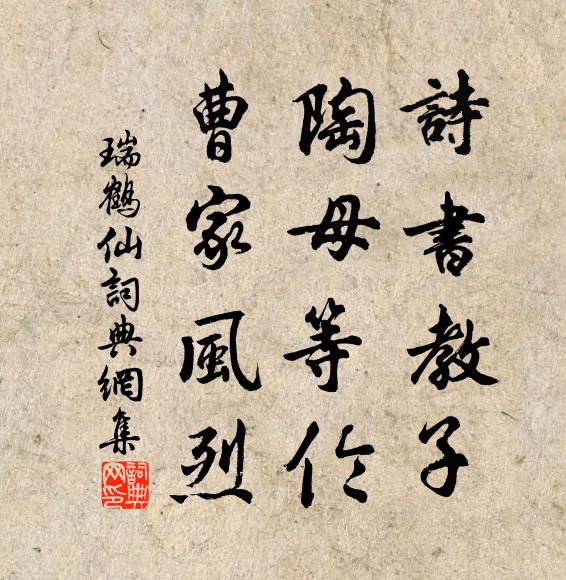 詩書教子
陶母等伦
曹家風烈
瑞鶴仙詞典網集
詞典网印